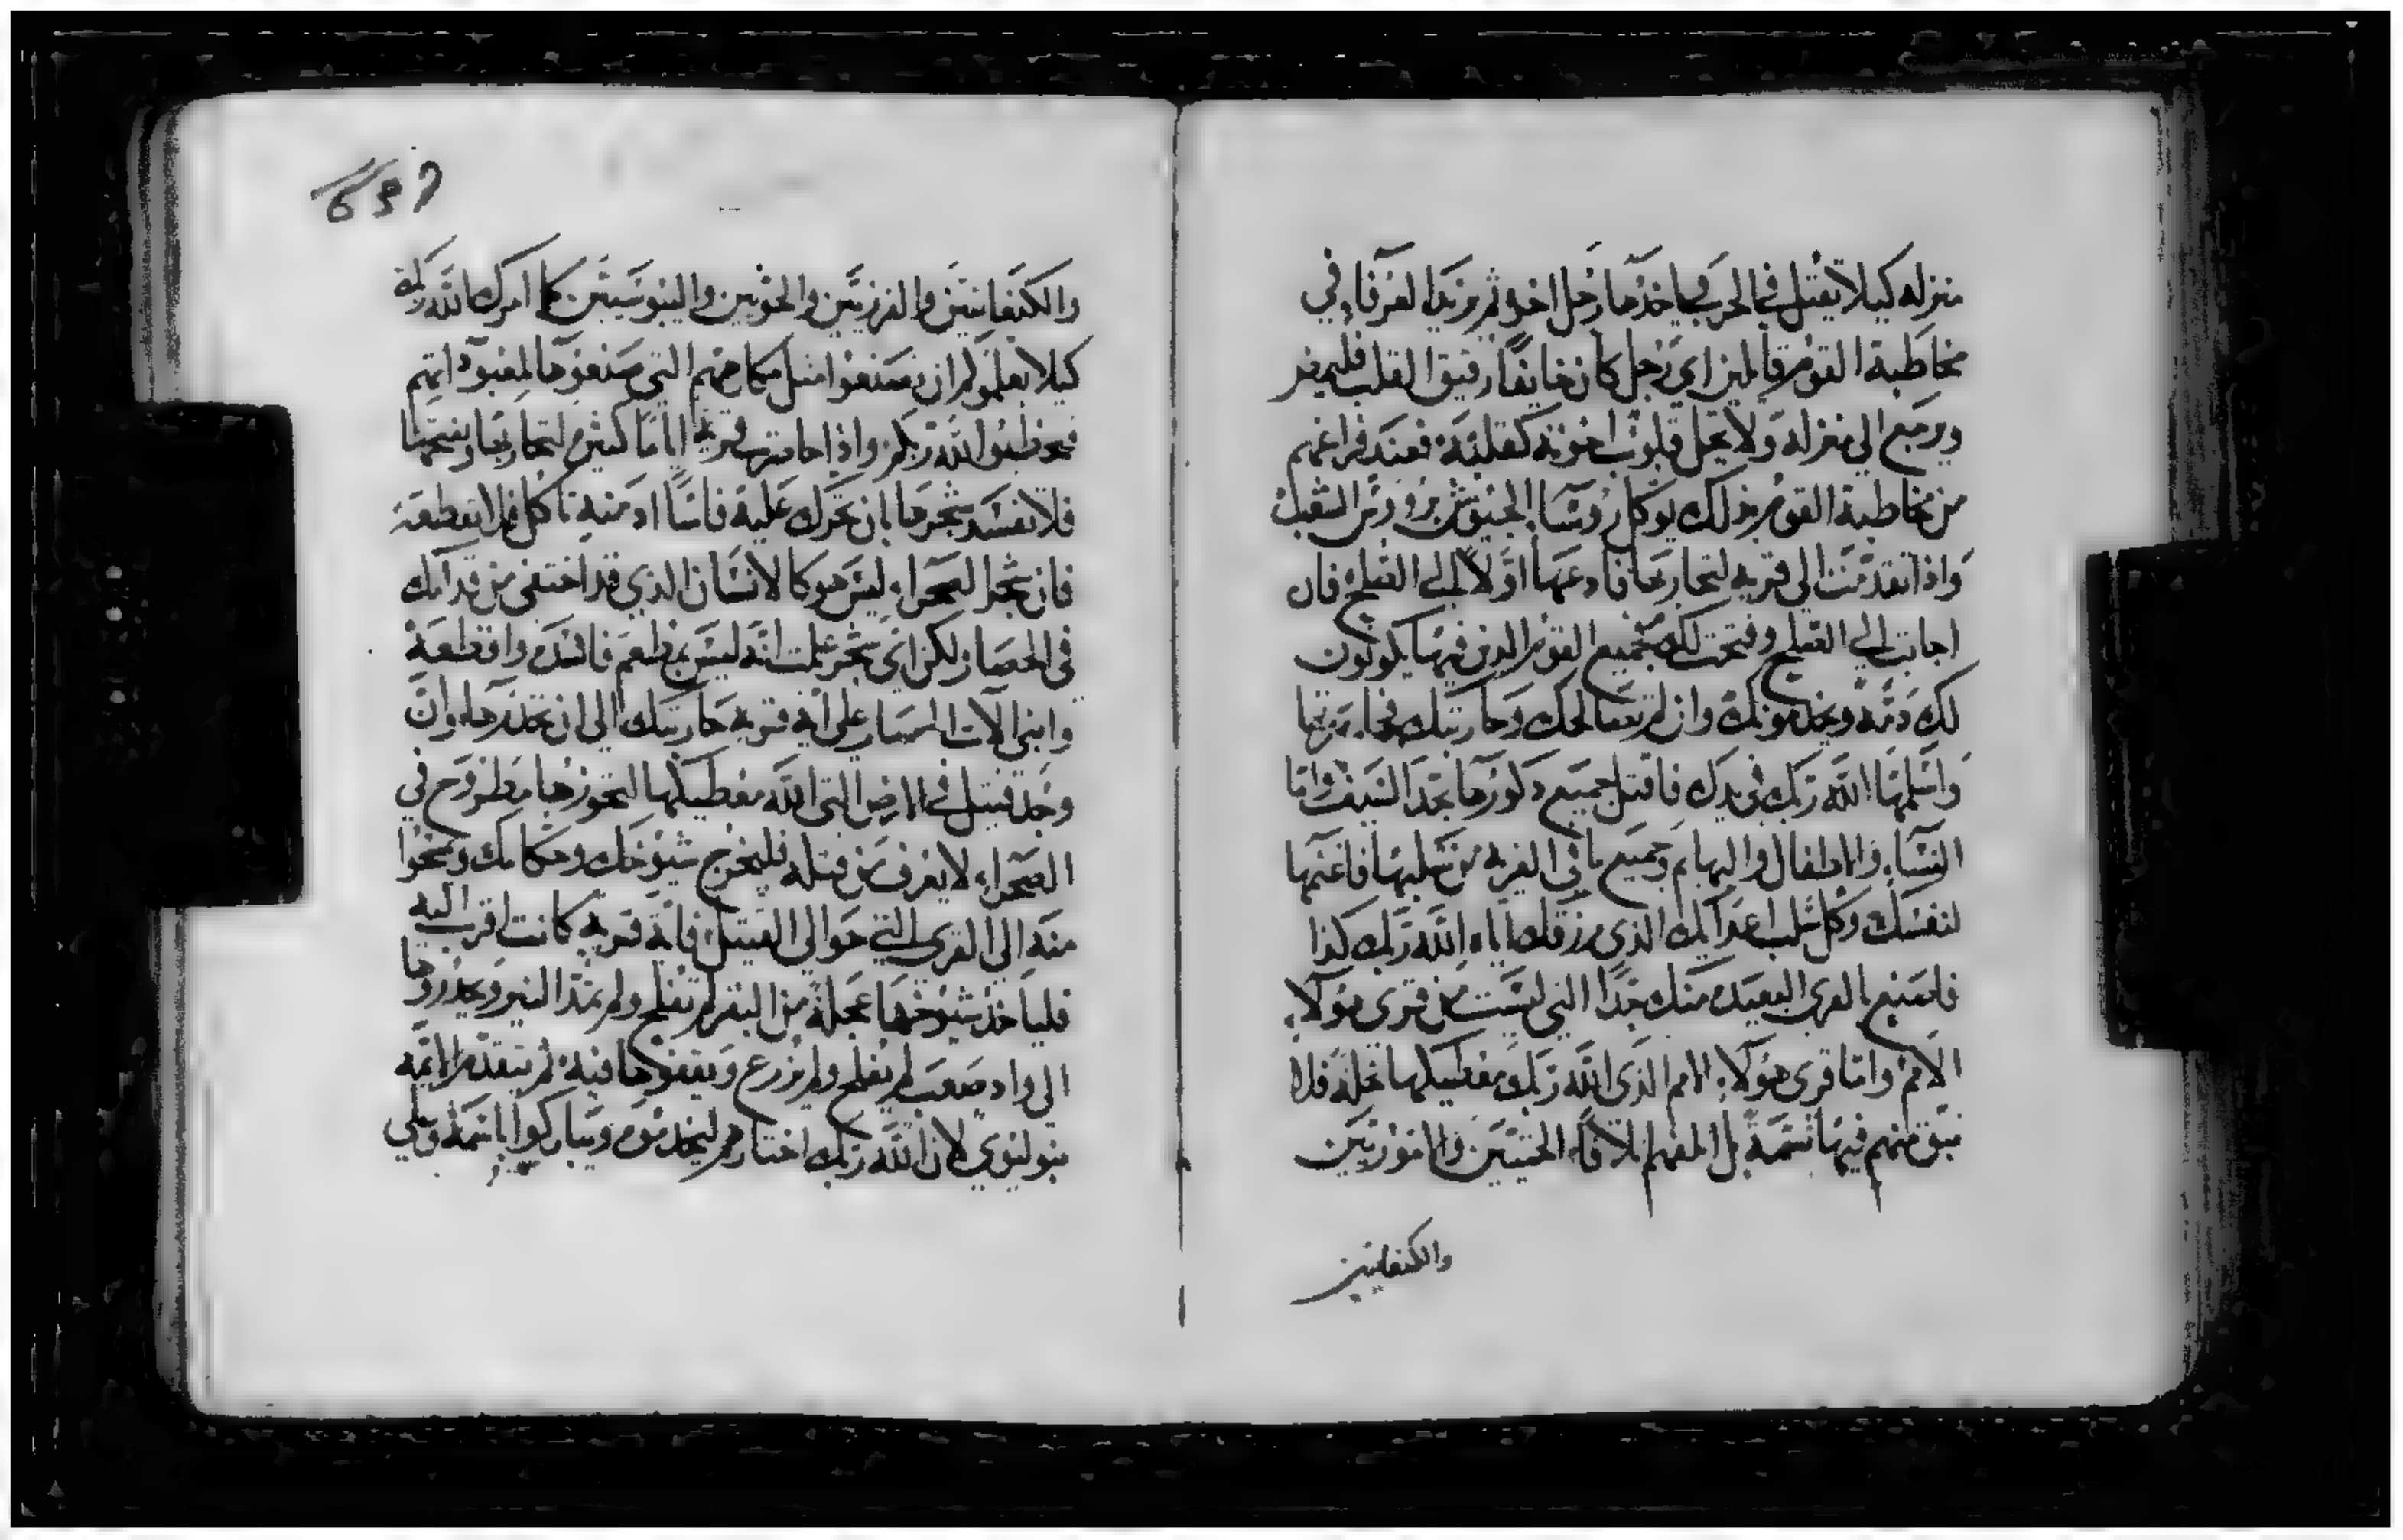 منزله كيلا يقتل في الحرب فياخذها رجل اخر ثم يزيدا العرفاء في
مخاطبة القوم قايلين اي رجل كان خايفًا رقيق القلب فليمض
ويرجع الي منزله ولا يحل قلوب اخوته كقلبه فعند فراغهم
من مخاطبة القوم بذلك يوكل روسا الجيوش بروس الشعب
واذا تقدمت الى قريه لتحاربها فادعها اولاً الي الصلح فان
اجابت الي الصلح وفتحت لك فجميع القوم الذين فيها يكونون
لك ذمة ويخدمونك وان لم تصالحك وحاربتك فحاصرتها
واسلمها الله ربك في يدك فاقتل جميع ذكورها بحد السيف واما
النساء والاطفال والبهايم وجميع ما في القريه من سلبها فاغنمها
لنفسك وكل سلب اعدايك الذى رزقك اياه الله ربك كذا
فاصنع بالقرى البعيده منك جدًا التي ليست من قرى هولاء
الامم واما قرى هولاء الامم الذى الله ربك معطيكها نحلة فلا
تبق منهم فيها نسمة بل اتلفهم اتلافاً الحتيين والاموريين
والكنعانيين
637
والكنعانيين والفرزيين والحويين واليبوسيين كما امرك الله ربك
كيلا يعلموكم ان تصنعوا مثل مكارههم التي صنعوها لمعبوداتهم
فتخطيوا الله ربكم واذا حاصرت قرية اياما كثيره لتحاربها وتفتحها
فلا تفسد شجرها بان تحرك عليه فاسًا اذ منه تاكل فلا تقطعه
فان شجر الصحراء ليس هو كالانسان الذي قد اختفى من قدامك
في الحصار لكن اى شجر علمت انه ليس بمطعم فافسده واقطعة
وابن الآت الحصار على اية قريه حاربتك الي ان تحدرها وان
وجد قتيل في الارض التي الله معطيكها لتحوزها مطروح في
الصحراء لا يعرف من قتله فليخرج شيوخك وحكامك ويمسحوا
منه الى القرى التي حوالي القتيل فاية قريه كانت اقرب اليه
فلياخذ شيوخها عجلة من البقر لم تفلح ولم تمد النير ويحدروها
الي واد صعب لم يفلح ولم يزرع ويقفوها فيه ثم يتقدم الائمه
بنو ليوي لان الله ربك اختارهم ليخدموه ويباركوا باسمه وعلي